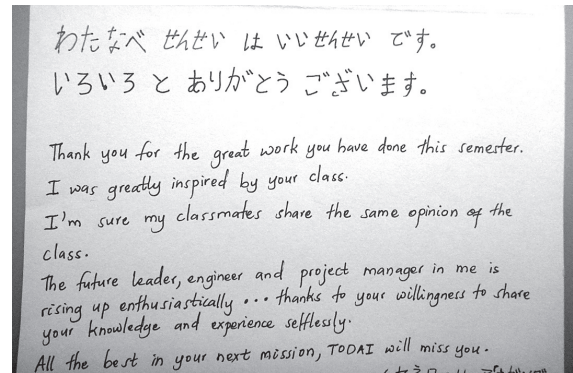 わたなべ せんせい は いいじせんせい です。
いろいろ と ありがとう ございます。
Thank you for the great work you have done this semester.
I was greatly inspired by your class.
I'm sure my classmates share the same opinion of the
class.
The future leader, engineer and project manager in me is
rising up enthusiastically ... thanks to your willingness to share
your knowledge and experience selflessly.
All the best in your next mission, TODAI will miss you.